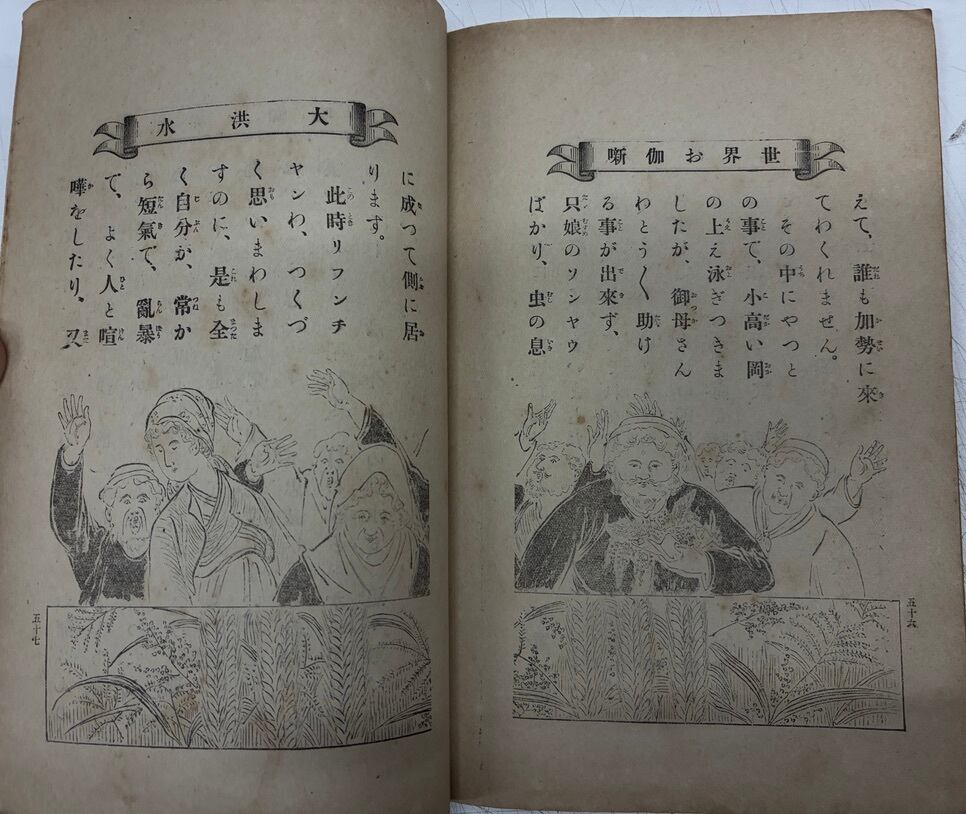 世界お伽噺
えて、誰も加勢に來
てわくれません。
その中にやつと
の事で、小高い岡
の上え泳ぎつきま
したが、御母さん
わとう〱助け
る事が出來ず、
只娘のソンヤウ
ばかり、虫の息
五十六
大洪水
に成つて側に居
ります。
此時リフンチ
ヤンわ、つくづ
く思いまわしま
すのに、是も全
く自分か、常か
ら短氣で、亂暴
て、よく人と喧
嘩をしたり、又
五十七